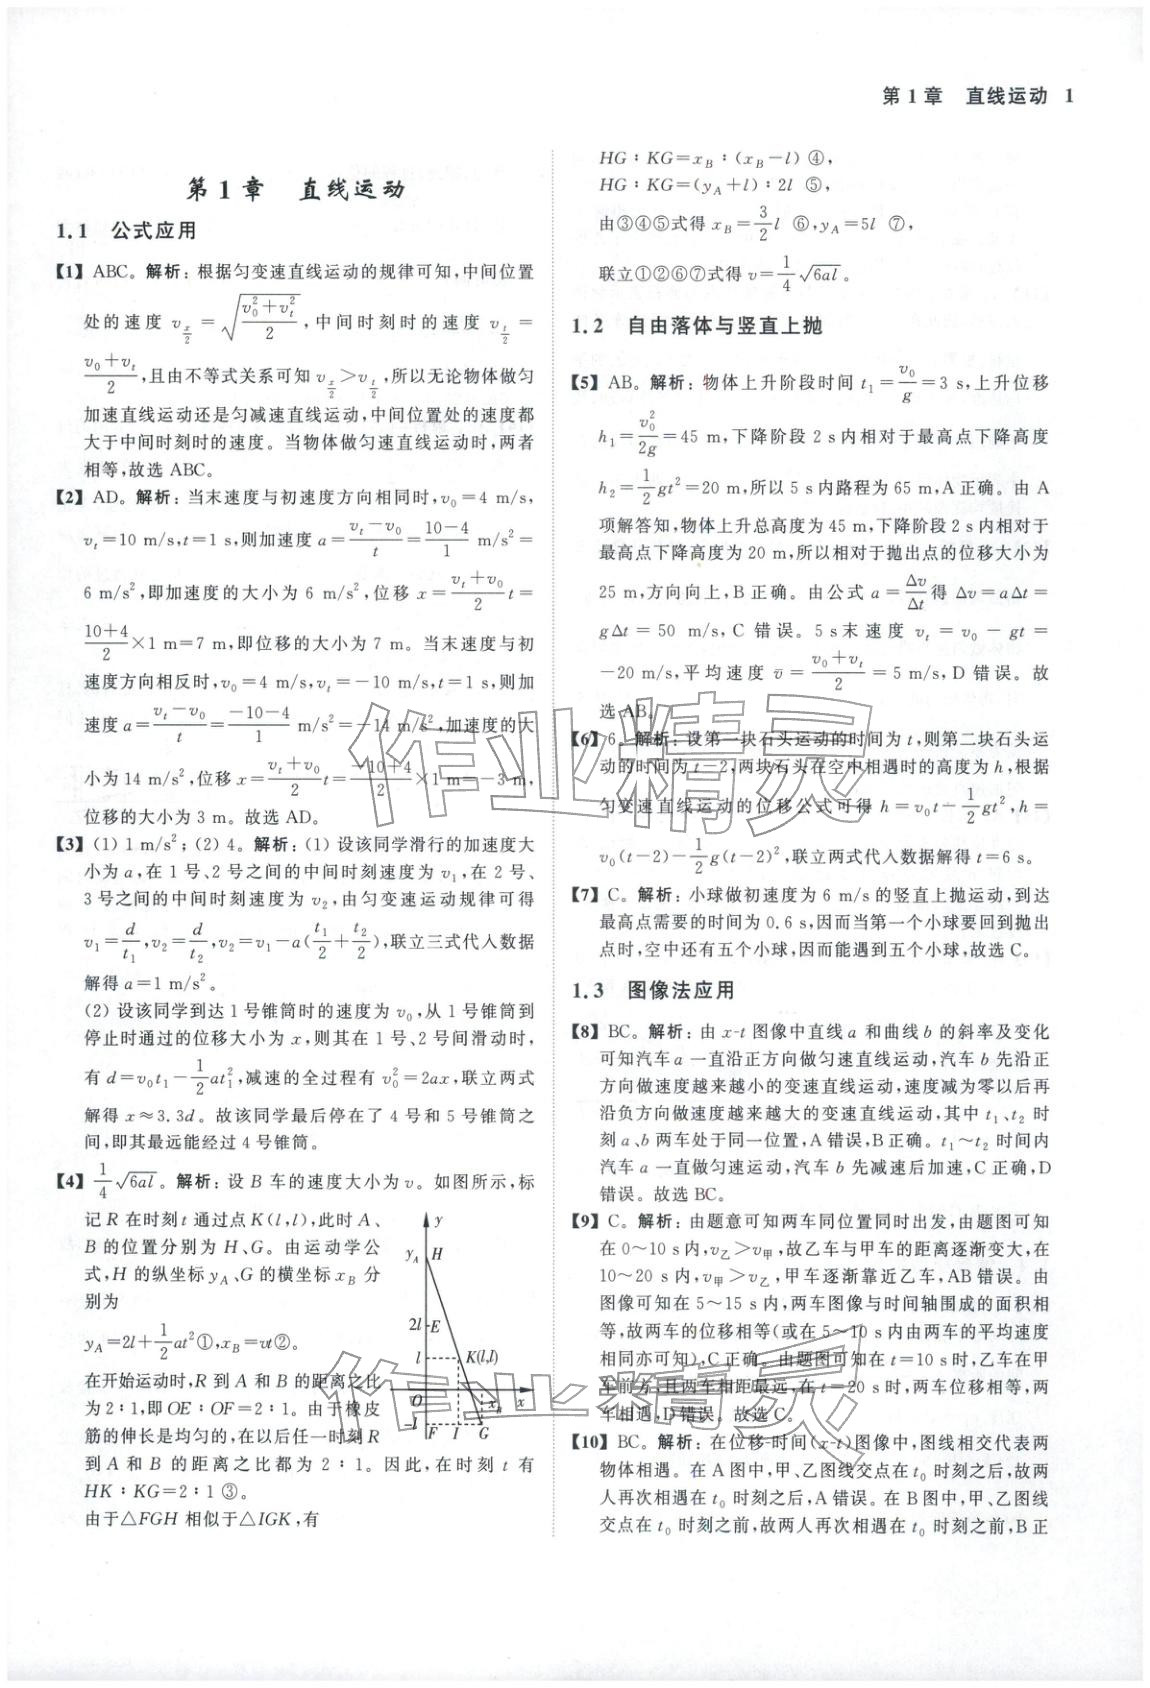 第1章 直线运动 1
第1章 直线运动
1.1 公式应用
【1】ABC。解析:根据匀变速直线运动的规律可知,中间位置
处的速度 v_{x/2}=√((v₀²+v_t²)/2),中间时刻时的速度 v_{t/2}=
(v₀+v_t)/2,且由不等式关系可知 v_{x/2}>v_{t/2},所以无论物体做匀
加速直线运动还是匀减速直线运动,中间位置处的速度都
大于中间时刻时的速度。当物体做匀速直线运动时,两者
相等,故选 ABC。
【2】AD。解析:当末速度与初速度方向相同时,v₀=4 m/s,
v_t=10 m/s,t=1 s,则加速度 a=(v_t-v₀)/t=(10-4)/1 m/s²=
6 m/s²,即加速度的大小为 6 m/s²,位移 x=(v_t+v₀)/2 t=
(10+4)/2×1 m=7 m,即位移的大小为 7 m。当末速度与初
速度方向相反时,v₀=4 m/s,v_t=-10 m/s,t=1 s,则加
速度 a=(v_t-v₀)/t=(-10-4)/1 m/s²=-14 m/s²,加速度的大
小为 14 m/s²,位移 x=(v_t+v₀)/2 t=(-10+4)/2×1 m=-3 m,
位移的大小为 3 m。故选 AD。
【3】(1) 1 m/s²;(2) 4。解析:(1) 设该同学滑行的加速度大
小为 a,在 1 号、2 号之间的中间时刻速度为 v₁,在 2 号、
3 号之间的中间时刻速度为 v₂,由匀变速运动规律可得
v₁=d/t₁,v₂=d/t₂,v₂=v₁-a(t₁/2+t₂/2),联立三式代入数据
解得 a=1 m/s²。
(2) 设该同学到达 1 号锥筒时的速度为 v₀,从 1 号锥筒到
停止时通过的位移大小为 x,则其在 1 号、2 号间滑动时,
有 d=v₀t₁-1/2 at₁²,减速的全过程有 v₀²=2ax,联立两式
解得 x≈3.3d。故该同学最后停在了 4 号和 5 号锥筒之
间,即其最远能经过 4 号锥筒。
【4】1/4 √(6al)。解析:设 B 车的速度大小为 v。如图所示,标
记 R 在时刻 t 通过点 K(l,l),此时 A、
B 的位置分别为 H、G。由运动学公
式,H 的纵坐标 y_A、G 的横坐标 x_B 分
别为
y_A=2l+1/2 at²①,x_B=vt②。
在开始运动时,R 到 A 和 B 的距离之比
为 2∶1,即 OE∶OF=2∶1。由于橡皮
筋的伸长是均匀的,在以后任一时刻 R
到 A 和 B 的距离之比都为 2∶1。因此,在时刻 t 有
HK∶KG=2∶1 ③。
由于△FGH 相似于△IGK,有
y
y_A H
2l E
l K(l,l)
O x_B x
-l F I G
HG∶KG=x_B∶(x_B-l) ④,
HG∶KG=(y_A+l)∶2l ⑤,
由③④⑤式得 x_B=3/2 l ⑥,y_A=5l ⑦,
联立①②⑥⑦式得 v=1/4 √(6al)。
1.2 自由落体与竖直上抛
【5】AB。解析:物体上升阶段时间 t₁=v₀/g=3 s,上升位移
h₁=v₀²/2g=45 m,下降阶段 2 s 内相对于最高点下降高度
h₂=1/2 gt²=20 m,所以 5 s 内路程为 65 m,A 正确。由 A
项解答知,物体上升总高度为 45 m,下降阶段 2 s 内相对于
最高点下降高度为 20 m,所以相对于抛出点的位移大小为
25 m,方向向上,B 正确。由公式 a=Δv/Δt 得 Δv=aΔt=
gΔt=50 m/s,C 错误。5 s 末速度 v_t=v₀-gt=
-20 m/s,平均速度 v̄=(v₀+v_t)/2=5 m/s,D 错误。故
选 AB。
【6】6。解析:设第一块石头运动的时间为 t,则第二块石头运
动的时间为 t-2,两块石头在空中相遇时的高度为 h,根据
匀变速直线运动的位移公式可得 h=v₀t-1/2 gt²,h=
v₀(t-2)-1/2 g(t-2)²,联立两式代入数据解得 t=6 s。
【7】C。解析:小球做初速度为 6 m/s 的竖直上抛运动,到达
最高点需要的时间为 0.6 s,因而当第一个小球要回到抛出
点时,空中还有五个小球,因而能遇到五个小球,故选 C。
1.3 图像法应用
【8】BC。解析:由 x-t 图像中直线 a 和曲线 b 的斜率及变化
可知汽车 a 一直沿正方向做匀速直线运动,汽车 b 先沿正
方向做速度越来越小的变速直线运动,速度减为零以后再
沿负方向做速度越来越大的变速直线运动,其中 t₁、t₂ 时
刻 a、b 两车处于同一位置,A 错误,B 正确。t₁~t₂ 时间内
汽车 a 一直做匀速运动,汽车 b 先减速后加速,C 正确,D
错误。故选 BC。
【9】C。解析:由题意可知两车同位置同时出发,由题图可知
在 0~10 s 内,v乙>v甲,故乙车与甲车的距离逐渐变大,在
10~20 s 内,v甲>v乙,甲车逐渐靠近乙车,AB 错误。由
图像可知在 5~15 s 内,两车图像与时间轴围成的面积相
等,故两车的位移相等(或在 5~10 s 内由两车的平均速度
相同亦可知),C 正确。由题图可知在 t=10 s 时,乙车在甲
车前方,且两车相距最远,在 t=20 s 时,两车位移相等,两
车相遇,D 错误。故选 C。
【10】BC。解析:在位移-时间(x-t)图像中,图线相交代表两
物体相遇。在 A 图中,甲、乙图线交点在 t₀ 时刻之后,故两
人再次相遇在 t₀ 时刻之后,A 错误。在 B 图中,甲、乙图线
交点在 t₀ 时刻之前,故两人再次相遇在 t₀ 时刻之前,B 正
作业精灵
作业精灵